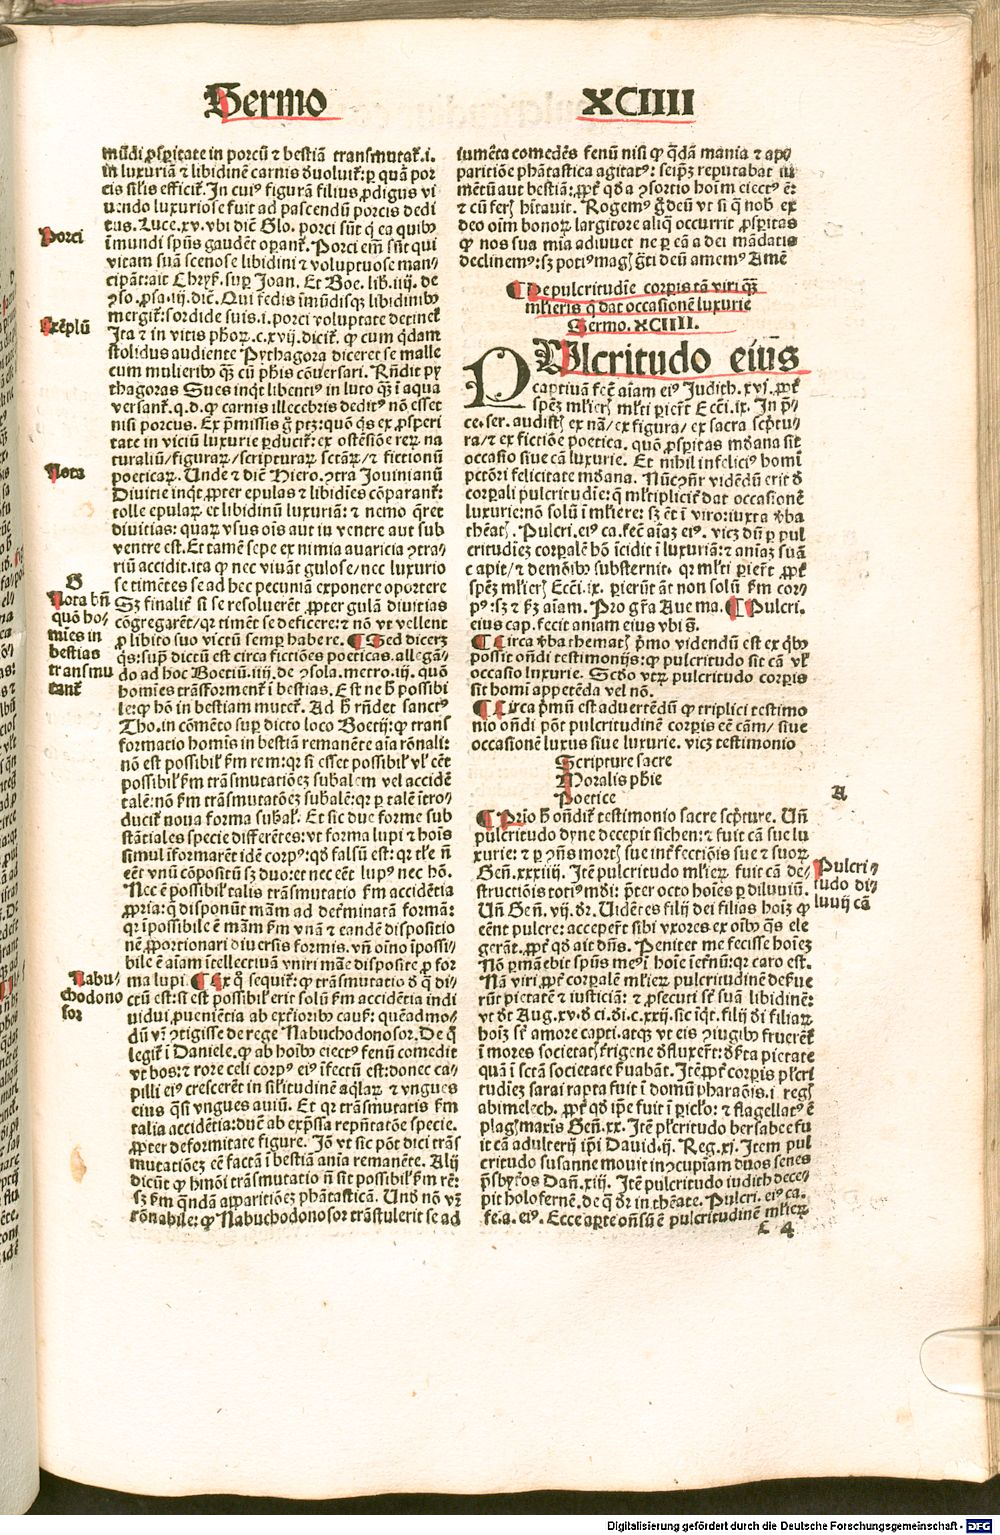 Sermo XCIIII
mūdi ꝓsꝑitate in porcū ⁊ bestiā transmutat̃.i.
in luxuriā ⁊ libidinē carnis ꝺuoluit̃:ꝑ quā por
cis silis efficit̃.In cuiꝰ figurā filius ꝓdigus vi
uendo luxuriose fuit ad pascendū porcis dedi
tus.Luce.xv.vbi diē Glo. porci sūt q̇ ea quibꝰ
Porci
īmundi spūs gaudēt oꝑant̃.Porci eim̄ sūt qui
vitam suā scenose libidini ⁊ voluptuose man⸗
cipāt:ait Chryẜ.suꝑ Joan. Et Boe. lib.iiij. de
ꝯso.ꝓsa.iij.diē.Qui fedis īmūdisq; libidinibꝰ
Exēplū
mergit̃:sordide suis.i.porci voluptate detinet̃
Ita ⁊ in vitis phoꝝ.c.xvij.dicit̃. ꝙ cum q̇dam
stolidus audiente Pythagora diceret se malle
cum mulieribꝰ q̄ꝫ cū ph̄is cōuersari. Rn̄dit py
thagoras Sues inqt libentiꝰ in luto q̄ꝫ ī aqua
versant̃.q.d.ꝙ carnis illecebris deditꝰ nō esset
nisi porcus. Ex p̄missis ḡ ptꝫ:quō q̇s ex ꝓsperi
tate in viciū luxurie ꝑducit̃:ex ostēsiōe reꝝ na
turaliū/figuraꝝ/scripturaꝝ sctāꝝ/⁊ fictionū
Nota
poeticaꝝ. Unde ⁊ diē Hiero.ꝯtra Jouinianū
Diuitie inqt ꝓpter epulas ⁊ libidīes cōparant̃:
tolle epulaꝝ et libidinū luxuriā: ⁊ nemo q̄ret
diuitias: quaꝝ vsus oīs aut in ventre aut sub
ventre est.Et tamē sepe ex nimia auaricia ꝯtra⸗
riū accidit.ita ꝙ nec viuāt gulose/nec luxurio
G
se timētes se ad hec pecuniā exponere oportere
Nota bn̄
quō ho⸗
mīes in
bestias
transmu
tant̃
Sꝫ finalit̃ si se resoluerēt ꝓpter gulā diuitias
cōgregarēt/qꝛ timēt se deficere:⁊ nō vt vellent
ꝓ libito suo victū semꝑ habere. ¶ Sed diceꝫ
q̇s:sup̄ dictū est circa fictiōes poeticas.allegā⸗
do ad hoc Boetiū.iiij.de ꝯsola.metro.iij. quō
homīes trāsforment̃ ī bestias. Est ne h̄ possibi
le:ꝙ hō in bestiam mutet̃. Ad h̄ rn̄det sanctꝰ
Tho.in cōmēto suꝑ dicto loco Boetij:ꝙ trans
formatio homīs in bestiā remanēte aīa rōnali:
nō est possibił ẜm rem:qꝛ si esset possibił vł eēt
possibił ẜm trāsmutatiōeꝫ subalem vel accidē
talē:nō ẜm trāsmutatōeꝫ subalē:qꝛ ꝑ talē ītro⸗
ducit̃ noua forma subał. Et sic due forme sub
stātiales specie differētes:vt forma lupi ⁊ hoīs
simul īformarēt idē corpꝰ:qđ falsū est: qꝛ tłe n̄
eēt vnū cōpositū sꝫ duo:et nec eēt lupꝰ nec hō.
Nec ē possibił talis trāsmutatio ẜm accidētia
ꝓpria:q̄ disponūt mām ad det̃minatā formā:
qꝛ īpossibile ē mām ẜm vnā ⁊ eandē dispositio
nē ꝓportionari diuersis formis. vn̄ oīno īpossi⸗
bile ē aīam ītellectiuā vniri māe disposite ꝓ for
Nabu⸗
chodono
sor
ma lupi. ¶ Ex q̇ sequit̃:ꝙ trāsmutatio ꝺ q̄ di⸗
ctū est:si est possibił erit solū ẜm accidētia indi
uidui ꝓueniētia ab ext̃ioribꝰ cauẜ: quēadmo⸗
dū vr̄ ꝯtigisse de rege Nabuchodonosor.De q̄
legit̃ ī Daniele.ꝙ ab hoībꝰ eiectꝰ fenū comedit
vt bos:⁊ rore celi corpꝰ eiꝰ īfectū est:donec ca⸗
pilli eiꝰ crescerēt in silitudinē aq̇laꝝ ⁊ vngues
eius q̄si vngues auiū. Et qꝛ transmutatis ẜm
talia accidētia:duēt ab exp̄ssa rep̄ntatōe specie.
ꝓpter deformitate figure. Jō vt sic pōt dici trās
mutatiōeꝫ eē factā ī bestiā aīa remanēte. Alij
dicūt ꝙ hmōi trāsmutatio n̄ sit possibił ẜm rē:
sꝫ ẜm quādā apparitiōeꝫ phātasticā. Unđ nō vr̄
rōnabile:ꝙ Nabuchodonosor trāstulerit se ad
iumēta comedēs fenū nisi ꝙ q̄dā mania ⁊ ap⸗
paritiōe phātastica agitatꝰ: seip̄ꝫ reputabat iu
mētū aut bestiā:ꝓpt̃ qđ a ꝯsortio hoīm eiectꝰ ē:
⁊ cū fer̃ hītauit. Rogemꝰ ḡ deū vt si q̄ nob̄ ex
deo oīm bonoꝝ largitore aliq̄ occurrit ꝓsꝑitas
ꝙ nos sua mīa adiuuet ne ꝑ eā a dei mādatis
declinemꝰ:sꝫ potiꝰ magꝭ gr̄ti deū amemꝰ Amē
¶ De pulcritudīe corpīs tā viri q̄ꝫ
młieris q̄ dat occasionē luxurie
Sermo.XCIIII.
PUlcritudo eiꝰ
captiuā fec̃ aīam eiꝰ Judith.xvj.ꝓpt̃
speꝫ młierꝭ młti ꝑier̃t Ecc̄i.ix. In p̄⸗
ce.ser.audistꝭ ex nā/ex figura/ex sacra sc̄ptu⸗
ra/⁊ ex fictiōe poetica. quō ꝓsꝑitas mūdana sit
occasio siue cā luxurie. Et nihil infeliciꝰ homī
pctōri felicitate mūdana. Nūc ꝯn̄r vidēdū erit ꝺ
corꝑali pulcritudīe:q̄ młtiplicit̃ dat occasionē
luxurie:nō solū ī mliere: sꝫ ēt ī viro:iuxta v̄ba
thēatꝭ. Pulcri.eiꝰ ca.fec̃ aīaꝫ eiꝰ. vicꝫ dū ꝑ pul
critudīeꝫ corꝑalē hō īcidit ī luxuriā:⁊ aniaꝫ suā
capit/⁊ demōibꝰ substernit. qꝛ młti ꝑier̃t ꝓpt̃
speꝫ mlierꝭ Ecc̄i.ix. ꝑierūt āt non solū ẜm cor⸗
pꝰ:sꝫ ⁊ ẜꝫ aīam. Pro gr̄a Aue ma. ¶ Pulcri.
eius cap.fecit aniam eius vbi s̄.
¶ Circa v̄ba themat̃ p̄mo videndū est ex q̇bꝰ
possit on̄di testimonijs:ꝙ pulcritudo sit cā vł
occasio luxurie. Scđo vtꝝ pulcritudo corꝑis
sit homī appetēda vel nō.
¶ Circa p̄mū est aduertēdū ꝙ triplici testimo
nio on̄di pōt pulcritudinē corꝑis eē cām/siue
occasionē luxus siue luxurie. vicꝫ testimonio
Scripture sacre
Moralis phīe
Poetice
A
¶ Prīo h̄ on̄dit̃ testimonio sacre sc̄pture. Un̄
pulcritudo dyne decepit sichen:⁊ fuit cā sue lu
xurie:⁊ ꝑ ꝯn̄s mortꝭ sue int̃fectiōis sue ⁊ suoꝝ
Pulcri⸗
tudo di⸗
luuij cā
Gen̄.xxxiiij. Itē pulcritudo młieꝝ fuit cā de⸗
structiōis totiꝰ mūdi: p̄ter octo hoīes ꝑ diluuiū.
Un̄ Gen̄. vij. ꝺr. Uidētes filij dei filias hoīꝫ ꝙ
cēnt pulcre: acceper̃t sibi vxores ex oībꝰ q̄s ele
gerāt.ꝓpt̃ qđ ait dn̄s. Penitet me fecisse hoīeꝫ
Nō ꝑmāebit spūs meꝰ ī hoīe iet̃nū:qꝛ caro est.
Nā viri ꝓpt̃ corꝑalē młieꝝ pulcritudinē deẜue
rūt pietatē ⁊ iusticiā: ⁊ ꝓsecuti sr̄ suā libidinē:
vt ꝺt Aug.xv.ꝺ ci.ꝺi.c.xxij.sic iqt.filij ꝺi filiaꝝ
hoīꝫ sr̄ amore capti.atqꝫ vt eis ꝯiugibꝰ fruerēt̃
ī mores societatꝭ t̃rigene ꝺfluxer̃t:ꝺẜta pietate
quā ī sctā societate ẜuabāt. Itē ꝓpt̃ corꝑis płcri
tudīeꝫ sarai rapta fuit ī domū pharaōis.i regꝭ
abimelech. ꝓpt̃ qđ ip̄e fuit ī ꝑicło: ⁊ flagellatꝰ ē
plagꝭ matris Gen̄.xx. Itē płcritudo bersabee fu
it cā adulterij ip̄i Dauid.ij. Reg.xj. Item pul
critudo susanne mouit in ꝯcupiam duos senes
p̄sbyt̃os Dan̄.xiij. Itē pulcritudo iudith dece⸗
pit holofernē.de q̄ ꝺr in thēate. Pulcri.eiꝰ ca.
fe.a.eiꝰ. Ecce aꝑte on̄sū ē pulcritudinē młieꝝ
L 4
Digitalisierung gefördert durch die Deutsche Forschungsgemeinschaft - DFG